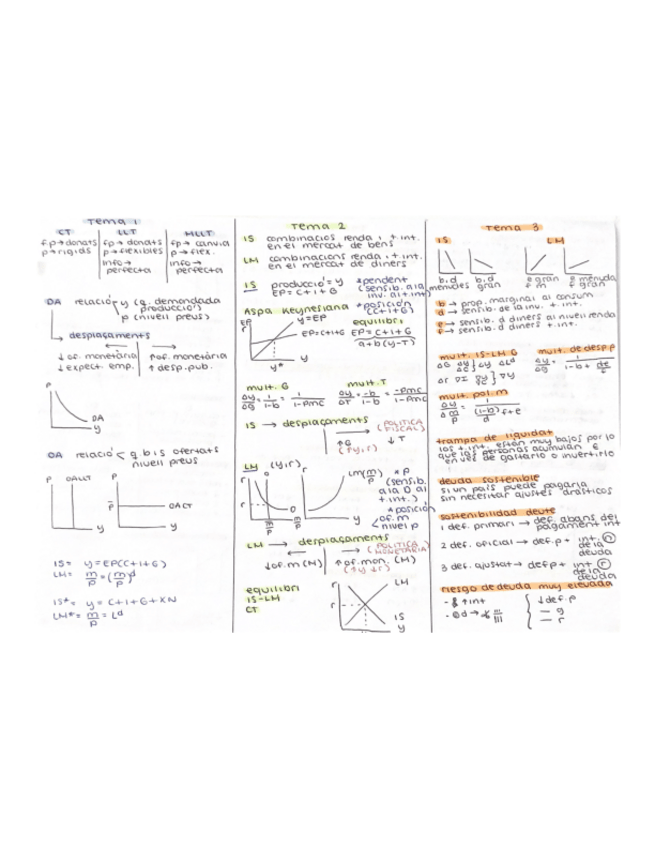 Tema 1
CT
LLT
MLLT
fp → donats
p → rigids
fp → donats
p → flexibles
info →
perfecta
fp → canvia
p → flex.
info →
perfecta
DA relació y (q. demandada
producció)
p (nivell preus)
desplaçaments
↓ of. monetària
↓ expect. emp.
↑ of. monetària
↑ desp. pub.
P
DA
y
OA relació q b i s ofertats
nivell preus
P OALLT
y
P
p̄
OACT
y
IS = y = EP(C+I+G)
LM = m/p = (m/p)d
IS* = y = C+I+G+XN
LM* = m/p = Ld
Tema 2
IS combinacions renda i t. int.
en el mercat de bens
LM combinacions renda i t. int.
en el mercat de diners
IS producció = y
EP = C+I+G
*pendent
(sensib. a la
inv. al t. int)
*posición
(C+I+G)
Aspa Keynesiana
EP
r
y=EP
EP=C+I+G
y*
y
equilibri
EP = C+I+G
a+b(y-T)
mult. G
Δy/Δg = 1/1-b = 1/1-PMC
mult. T
Δy/ΔT = -b/1-b = -PMC/1-PMC
IS → desplaçaments
(POLÍTICA
FISCAL)
↑G
(↑y,r)
↓T
LM (y,r)
r
O
D
m/p
m/p
r
LM(m/p)
y
*p
(sensib.
a la D al
t. int.)
*posició
of. m
nivel p
LM → desplaçaments
(POLÍTICA
MONETÀRIA)
↓of. m (M)
↑of. mon. (M)
(↑y ↓r)
equilibri
IS-LM
CT
r
r
LM
IS
y
Tema 3
IS
LM
b.d
menudes
b.d
gran
e gran
f
e menuda
f gran
b → prop. marginal al consum
d → sensib. de la inv. t. int.
e → sensib. d diners al nivell renda
f → sensib. d diners t. int.
mult. IS-LM G
mult. de desp. p
mult. pol. m
trampa de liquidat
los t. int. están muy bajos por lo
que las personas acumulan €
en vez de gastarlo o invertirlo
deuda sostenible
si un país puede pagarla
sin necesitar ajustes drásticos
sostenibilidad deute
1 def. primari → def. abans del
pagament int
2 def. oficial → def. p + int. (n)
de la
deuda
3 def. ajustat → def p + int. (r)
de la
deuda
riesgo de deuda muy elevada
↑ int
↓ def. p
— g
— r